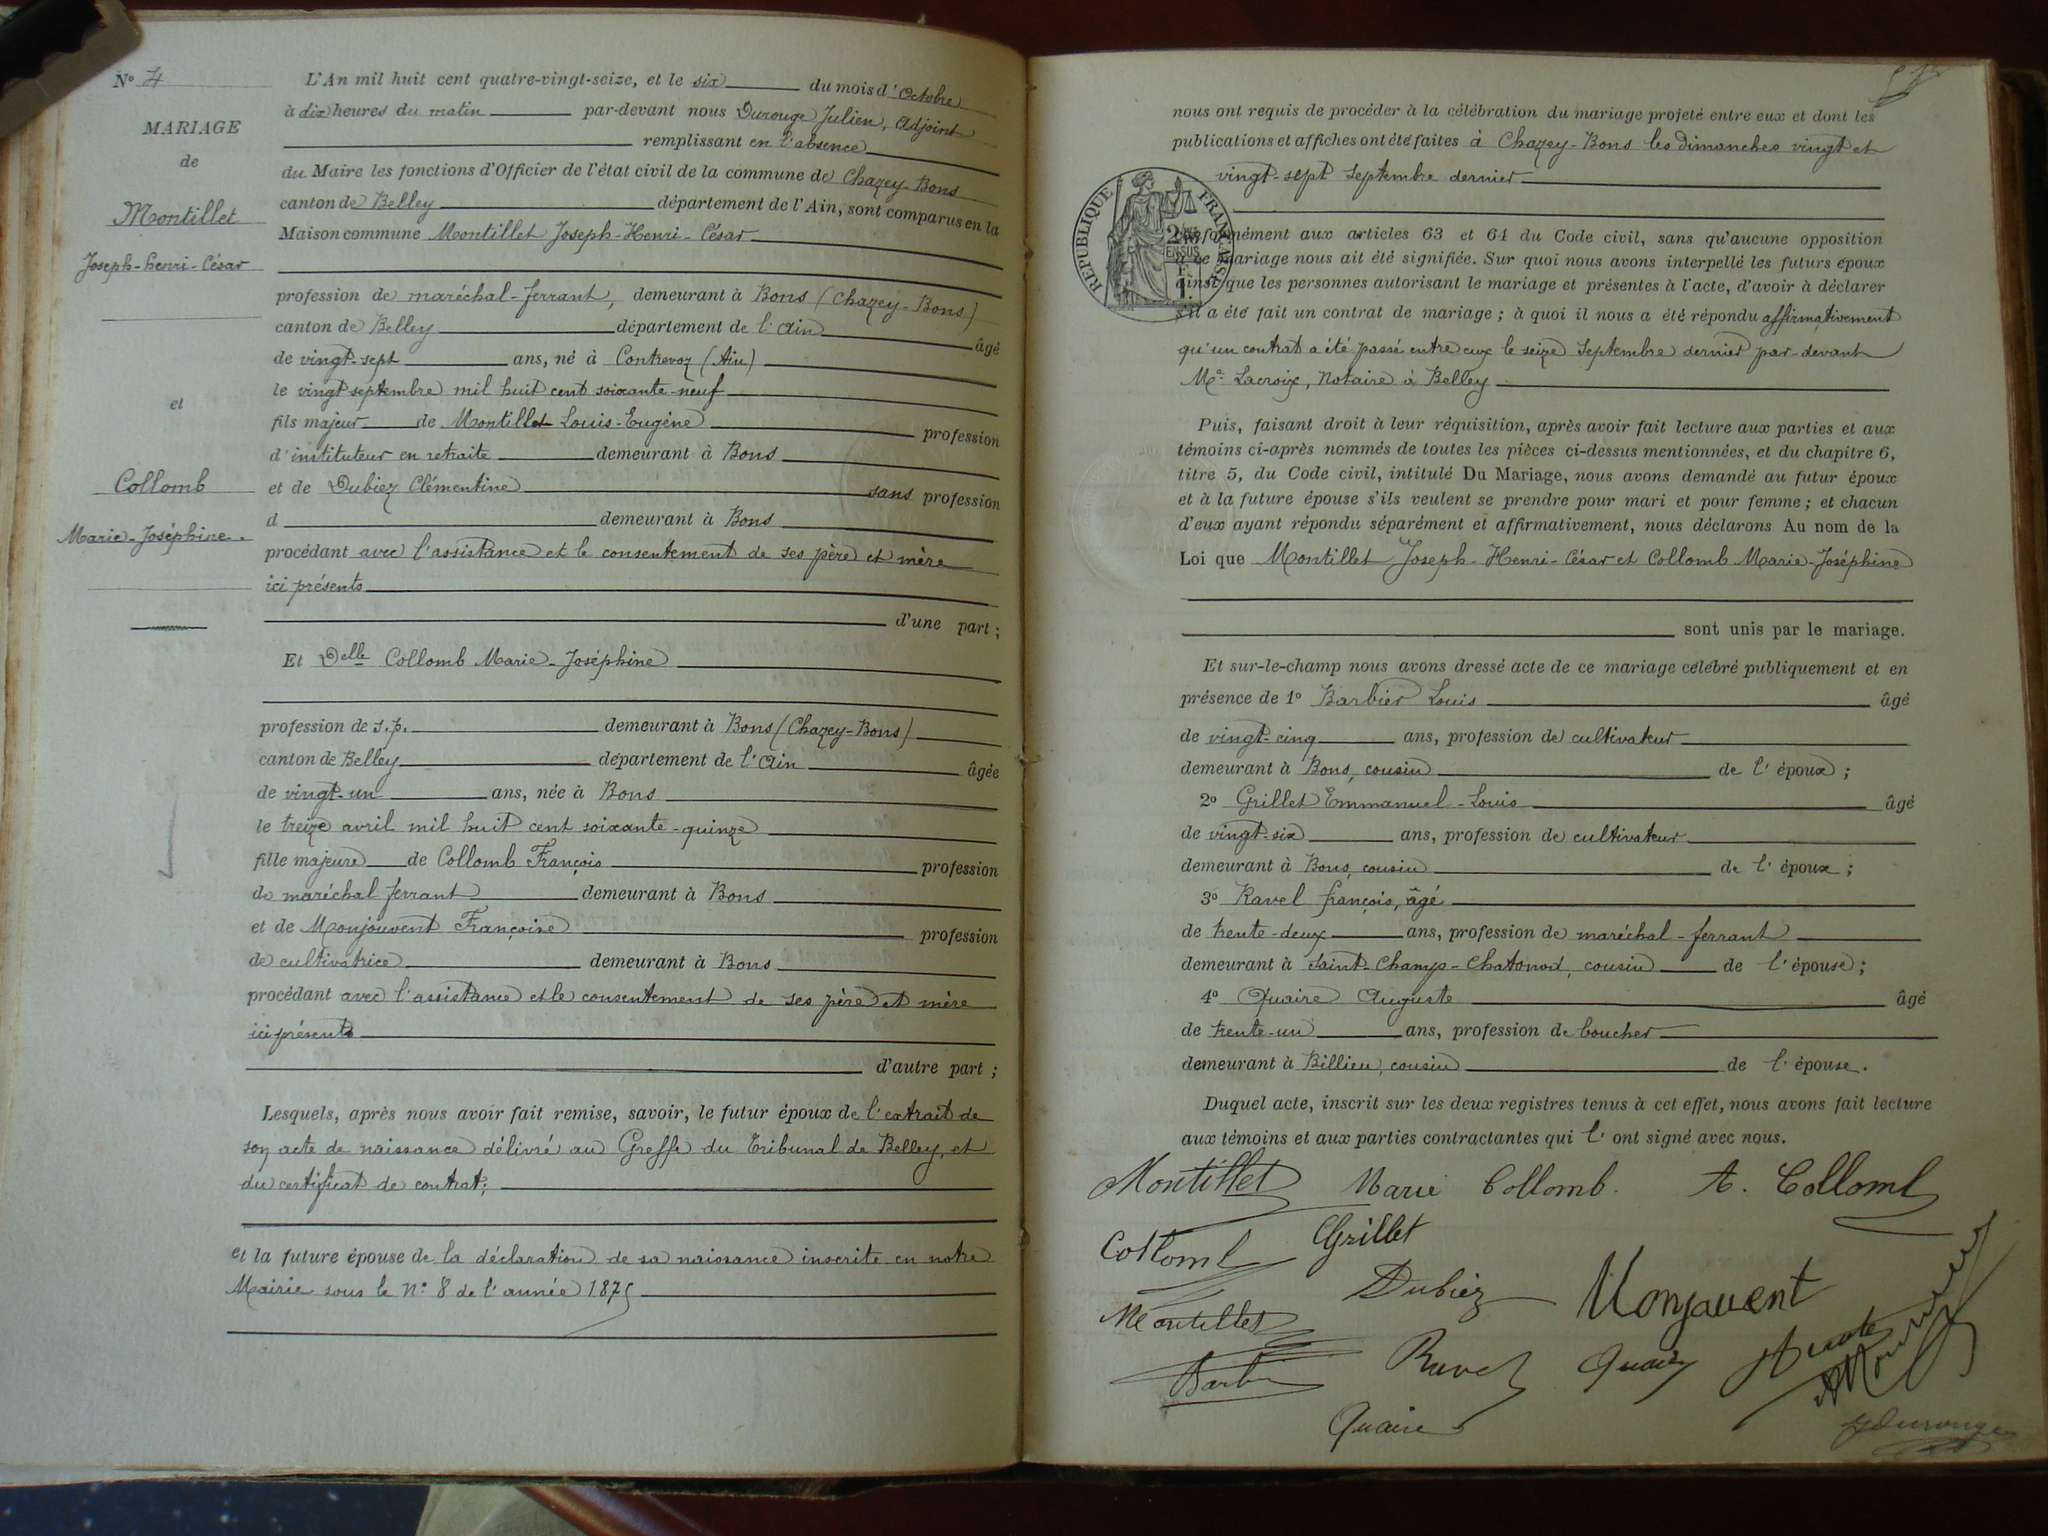 N° 4
MARIAGE
de
Montillet
Joseph-henri-César
et
Collomb
Marie-Joséphine.
L'An mil huit cent quatre-vingt-seize, et le six du mois d'Octobre
à dix heures du matin par-devant nous Durouge Julien, Adjoint
remplissant en l'absence
du Maire les fonctions d'Officier de l'état civil de la commune de Chazey-Bons
canton de Belley département de l'Ain, sont comparus en la
Maison commune Montillet Joseph-Henri-César
profession de maréchal-ferrant, demeurant à Bons (Chazey-Bons)
canton de Belley département de l'Ain âgé
de vingt-sept ans, né à Contrevoz (Ain)
le vingt septembre mil huit cent soixante-neuf
fils majeur de Montillet Louis-Eugène profession
d'instituteur en retraite demeurant à Bons
et de Dubiez Clémentine sans profession
d demeurant à Bons
procédant avec l'assistance et le consentement de ses père et mère
ici présents
d'une part ;
Et Delle Collomb Marie-Joséphine
profession de s.p. demeurant à Bons (Chazey-Bons)
canton de Belley département de l'Ain âgée
de vingt-un ans, née à Bons
le treize avril mil huit cent soixante-quinze
fille majeure de Collomb François profession
de maréchal ferrant demeurant à Bons
et de Monjouvent Françoise profession
de cultivatrice demeurant à Bons
procédant avec l'assistance et le consentement de ses père et mère
ici présents
d'autre part ;
Lesquels, après nous avoir fait remise, savoir, le futur époux de l'extrait de
son acte de naissance délivré au Greffe du Tribunal de Belley, et
du certificat de contrat;
et la future épouse de la déclaration de sa naissance inscrite en notre
Mairie sous le N° 8 de l'année 1875
nous ont requis de procéder à la célébration du mariage projeté entre eux et dont les
publications et affiches ont été faites à Chazey-Bons les dimanches vingt et
vingt-sept septembre dernier
RÉPUBLIQUE FRANÇAISE
conformément aux articles 63 et 64 du Code civil, sans qu'aucune opposition
à ce mariage nous ait été signifiée. Sur quoi nous avons interpellé les futurs époux
ainsi que les personnes autorisant le mariage et présentes à l'acte, d'avoir à déclarer
s'il a été fait un contrat de mariage ; à quoi il nous a été répondu affirmativement
qu'un contrat a été passé entre eux le seize Septembre dernier par-devant
Me Lacroix, Notaire à Belley
Puis, faisant droit à leur réquisition, après avoir fait lecture aux parties et aux
témoins ci-après nommés de toutes les pièces ci-dessus mentionnées, et du chapitre 6,
titre 5, du Code civil, intitulé Du Mariage, nous avons demandé au futur époux
et à la future épouse s'ils veulent se prendre pour mari et pour femme ; et chacun
d'eux ayant répondu séparément et affirmativement, nous déclarons Au nom de la
Loi que Montillet Joseph-Henri-César et Collomb Marie-Joséphine
sont unis par le mariage.
Et sur-le-champ nous avons dressé acte de ce mariage célébré publiquement et en
présence de 1° Barbier Louis âgé
de vingt-cinq ans, profession de cultivateur
demeurant à Bons, cousin de l'époux ;
2° Grillet Emmanuel-Louis âgé
de vingt-six ans, profession de cultivateur
demeurant à Bons, cousin de l'époux ;
3° Ravel françois, âgé
de trente-deux ans, profession de maréchal-ferrant
demeurant à Saint-Champ-Chatonod, cousin de l'épouse ;
4° Quaire Auguste âgé
de trente-un ans, profession de boucher
demeurant à Billieu, cousin de l'épouse.
Duquel acte, inscrit sur les deux registres tenus à cet effet, nous avons fait lecture
aux témoins et aux parties contractantes qui l'ont signé avec nous.
Montillet Marie Collomb. A. Collomb
Collomb Grillet
Dubiez Monjauvent
Montillet
Ravel
Quaire
JDurouge